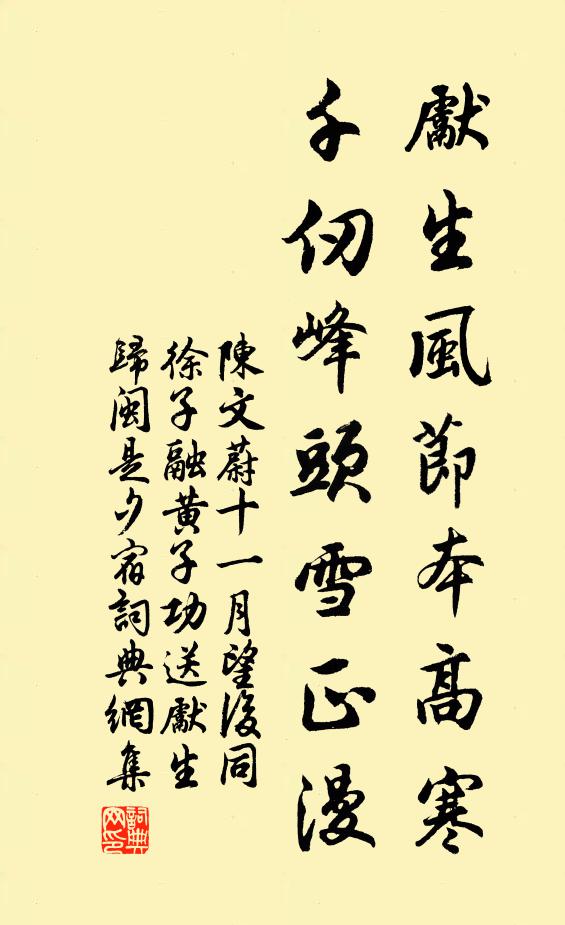 獻生風節本高寒
千仞峰頭雪正漫
陳文蔚十一月望後同
徐子融黃子功送獻生
歸閩是夕宿詞典網集
詞典
网印